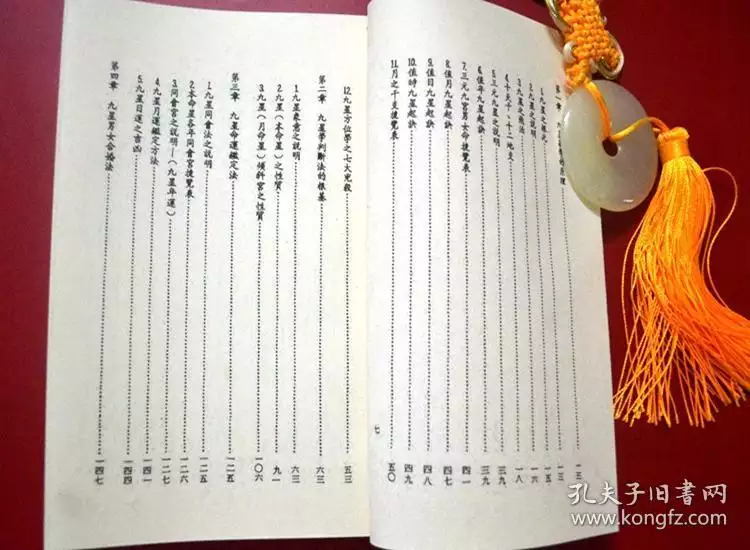 第一章 九星 學的原理 一三
1.九星之 一三
2.九星之說明 一五
3.九星之飛法 一六
4.十天干、十二地支 一八
5.三元九星之說明 三九
6.值年九星起訣 三九
7.三元九宮男女命捷覽表 四一
8.值月九星起訣 四七
9.值日九星起訣 四八
10.值時九星起訣 四九
11.月之干支捷覽表 五〇
七
12.九星方位學之七大兇殺 五三
第二章 九星學判斷法的根基 六三
1.九星象意之說明 六三
2.九星（本命星）之性質 九一
3.九星（月命星）傾斜宮之性質 一〇六
第三章 九星命運鑑定法 一二五
1.九星同會法之說明 一二五
2.本命星各年同會宮捷覽表 一二六
3.同會宮之說明—（九星年運） 一二七
4.九星月運鑑定方法 一四一
5.九星日運之吉凶 一四四
第四章 九星男女合婚法 一四七
孔夫子旧书网
www.kongfz.com